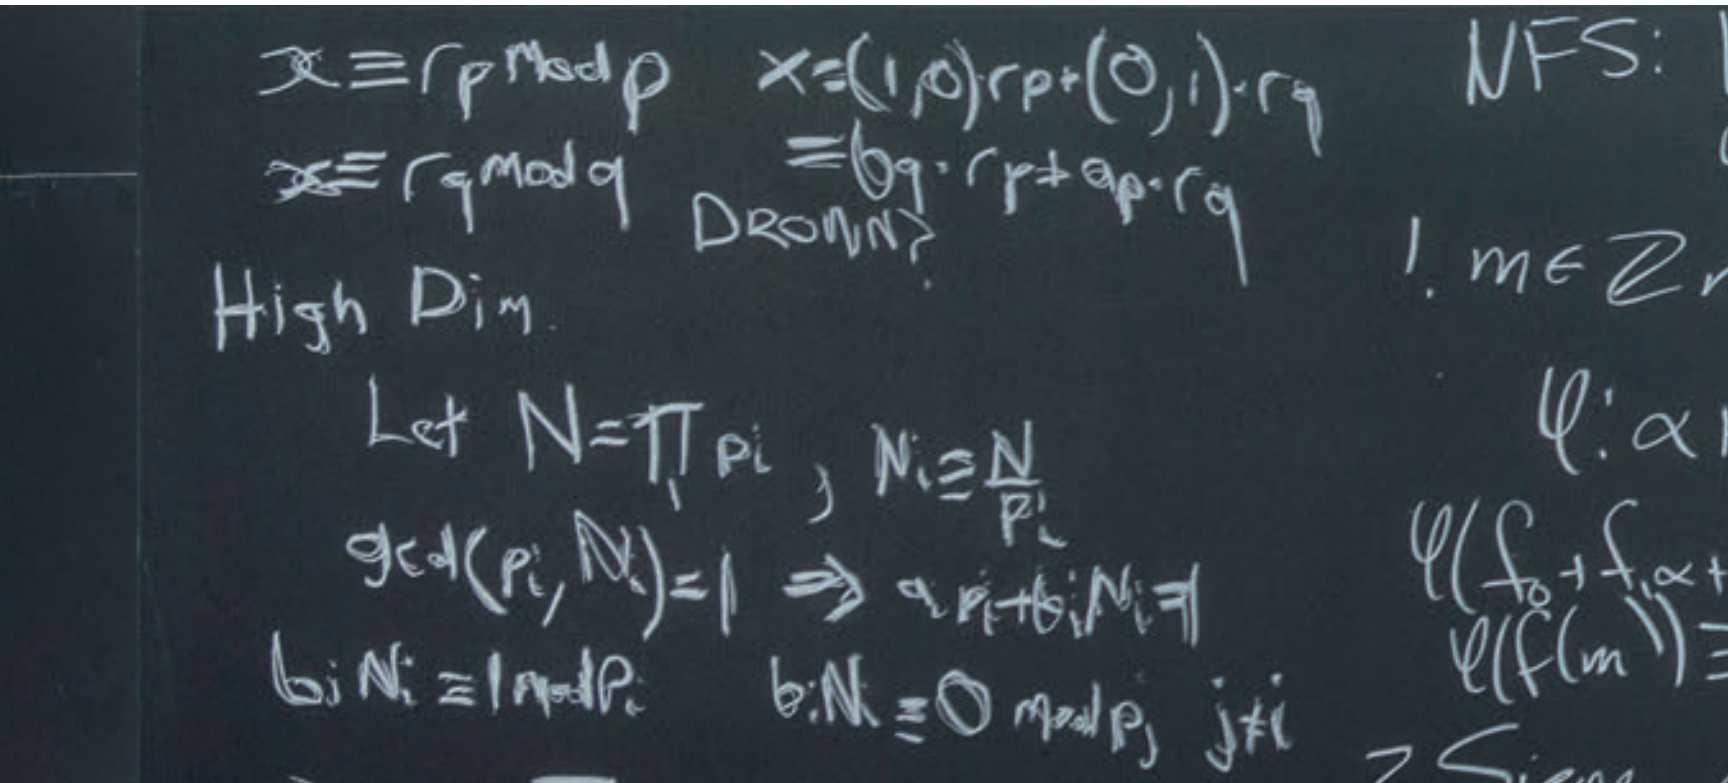 x ≡ rp mod p
x ≡ rq mod q
x=(1,0)·rp+(0,1)·rq
=bq·rp+ap·rq
DROWN?
High Dim.
Let N=∏i pi , Ni≡N/Pi
gcd(pi,Ni)=1 ⇒ aipi+biNi=1
biNi≡1 mod Pi    biNi≡0 mod Pj  j≠i
NFS:
1. m∈Z
φ:α
φ(f0+f1α+
φ(f(m))≡